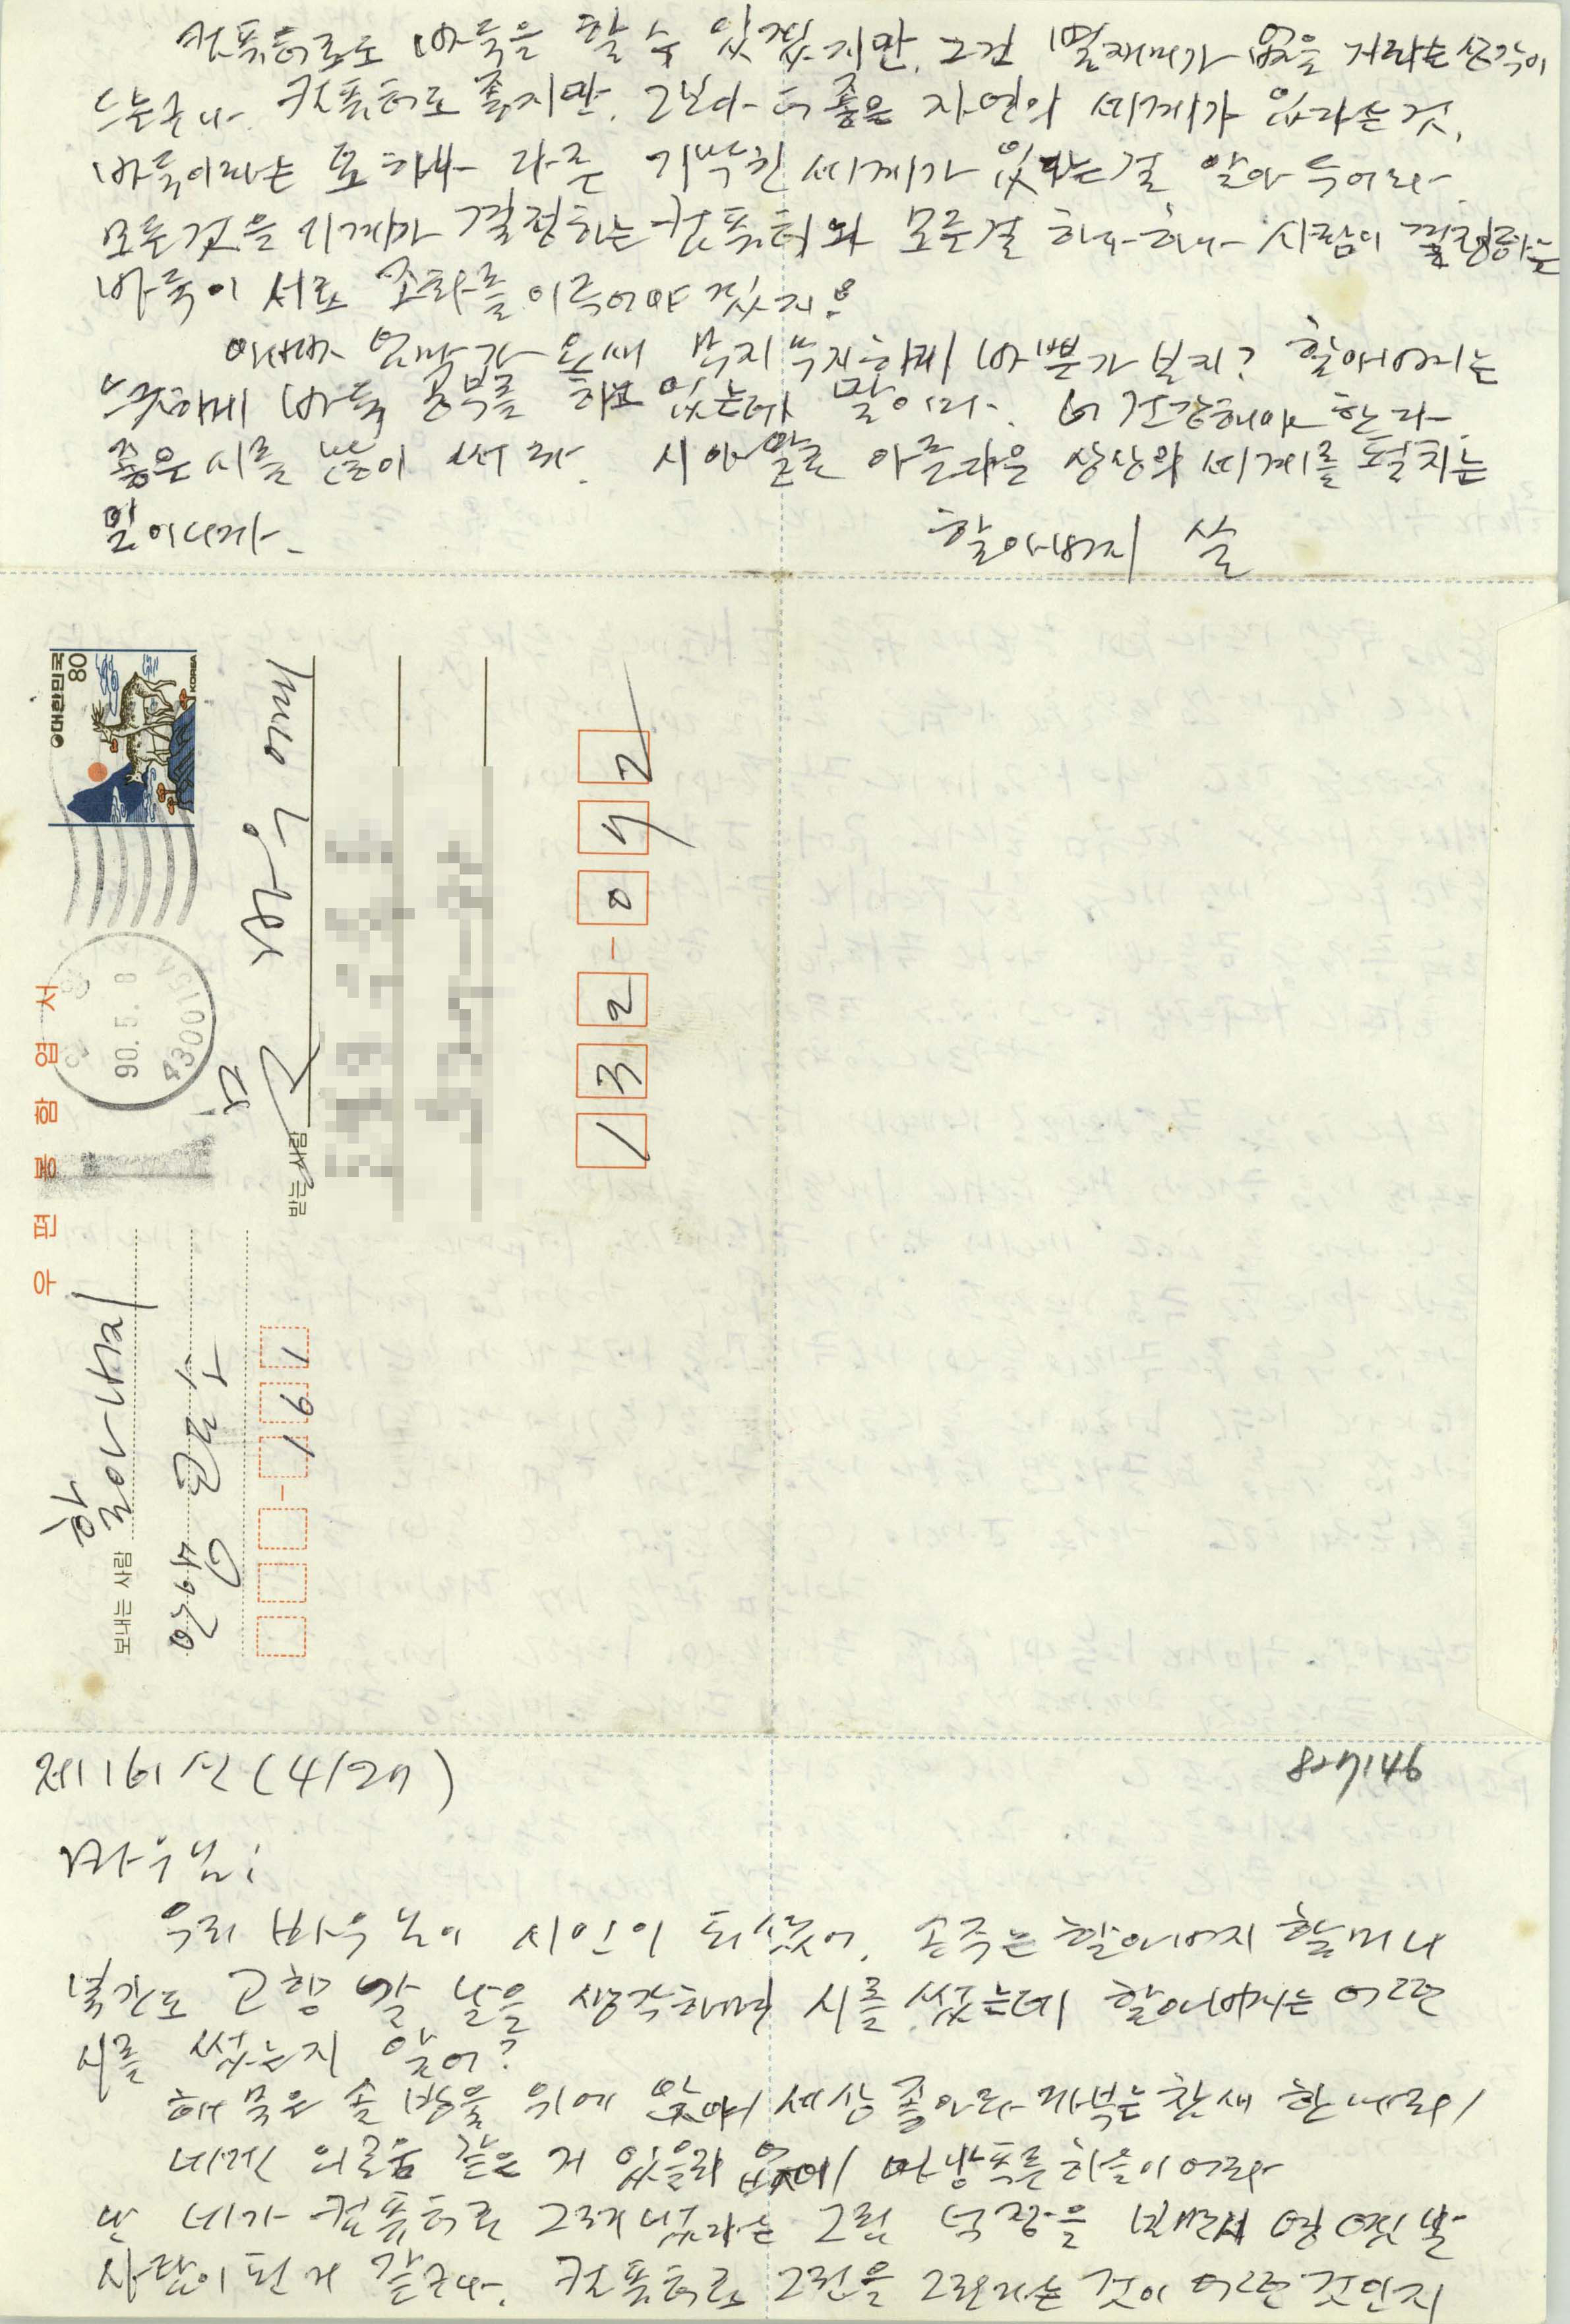 컴퓨터로도 바둑을 할 수 있겠지만, 그건 별재미가 없을 거라는 생각이
드는구나. 컴퓨터도 좋지만, 그보다 더 좋은 자연의 세계가 있다는 것,
바둑이라는 또 하나 다른 기막힌 세계가 있다는 걸 알아 두어라.
모든 것을 기계가 결정하는 컴퓨터와 모든걸 하나하나 사람이 결정하는
바둑이 서로 조화를 이루어야 겠지?
아빠 엄마가 요새 무지무지하게 바쁜가 보지? 할아버지는
느긋하게 바둑 공부를 하고 있는데 말이다. 늘 건강해야 한다.
좋은 시를 많이 써 라. 시야말로 아름다운 상상의 세계를 펼치는
일이니까.
할아버지 씀
대한민국
80
KOREA
90. 5. 8
우편봉함엽서
보내는 사람
할아버지
받는 사람
132-042
제161신 (4/27)
827146
바우님;
우리 바우님이 시인이 되셨어. 손주는 할아버지 할머니
고향 갈 날을 생각하며 시를 썼는데 할아버지는 어떤
시를 썼는지 알어?
해묵은 솔방울 위에 앉아 세상 좋아라 참새 한 마리
네겐 외로움 같은 거 있을리 없지 마냥 푸른 하늘이어라
난 네가 컴퓨터로 그려 냈다는 그림 넉 장을 보면서
사람이 된 거 같구나. 컴퓨터로 그림을 그린다는 것이 어떤 것인지